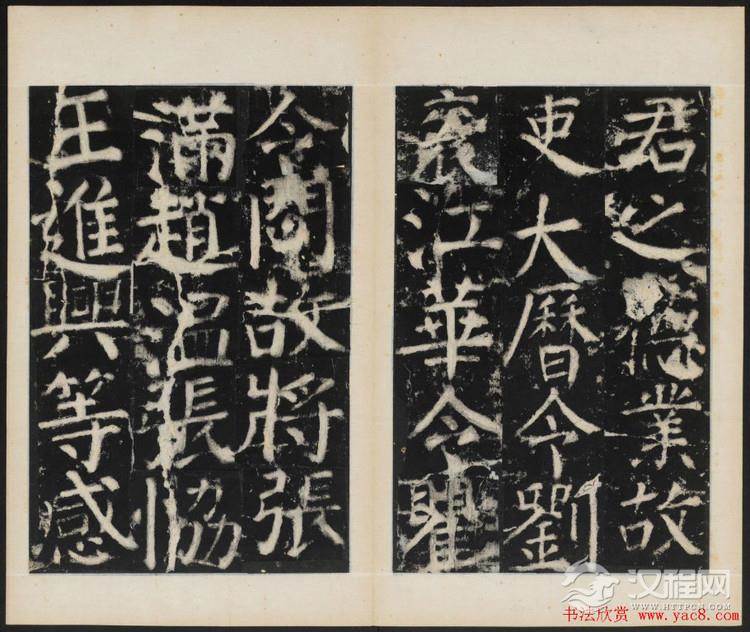 君之德業故
吏大曆令劉
袞江華令瞿
令問故將張
滿趙温張協
王進興等感
汉程网
WWW.HTTPCN.COM
书法欣赏 www.yac8.com